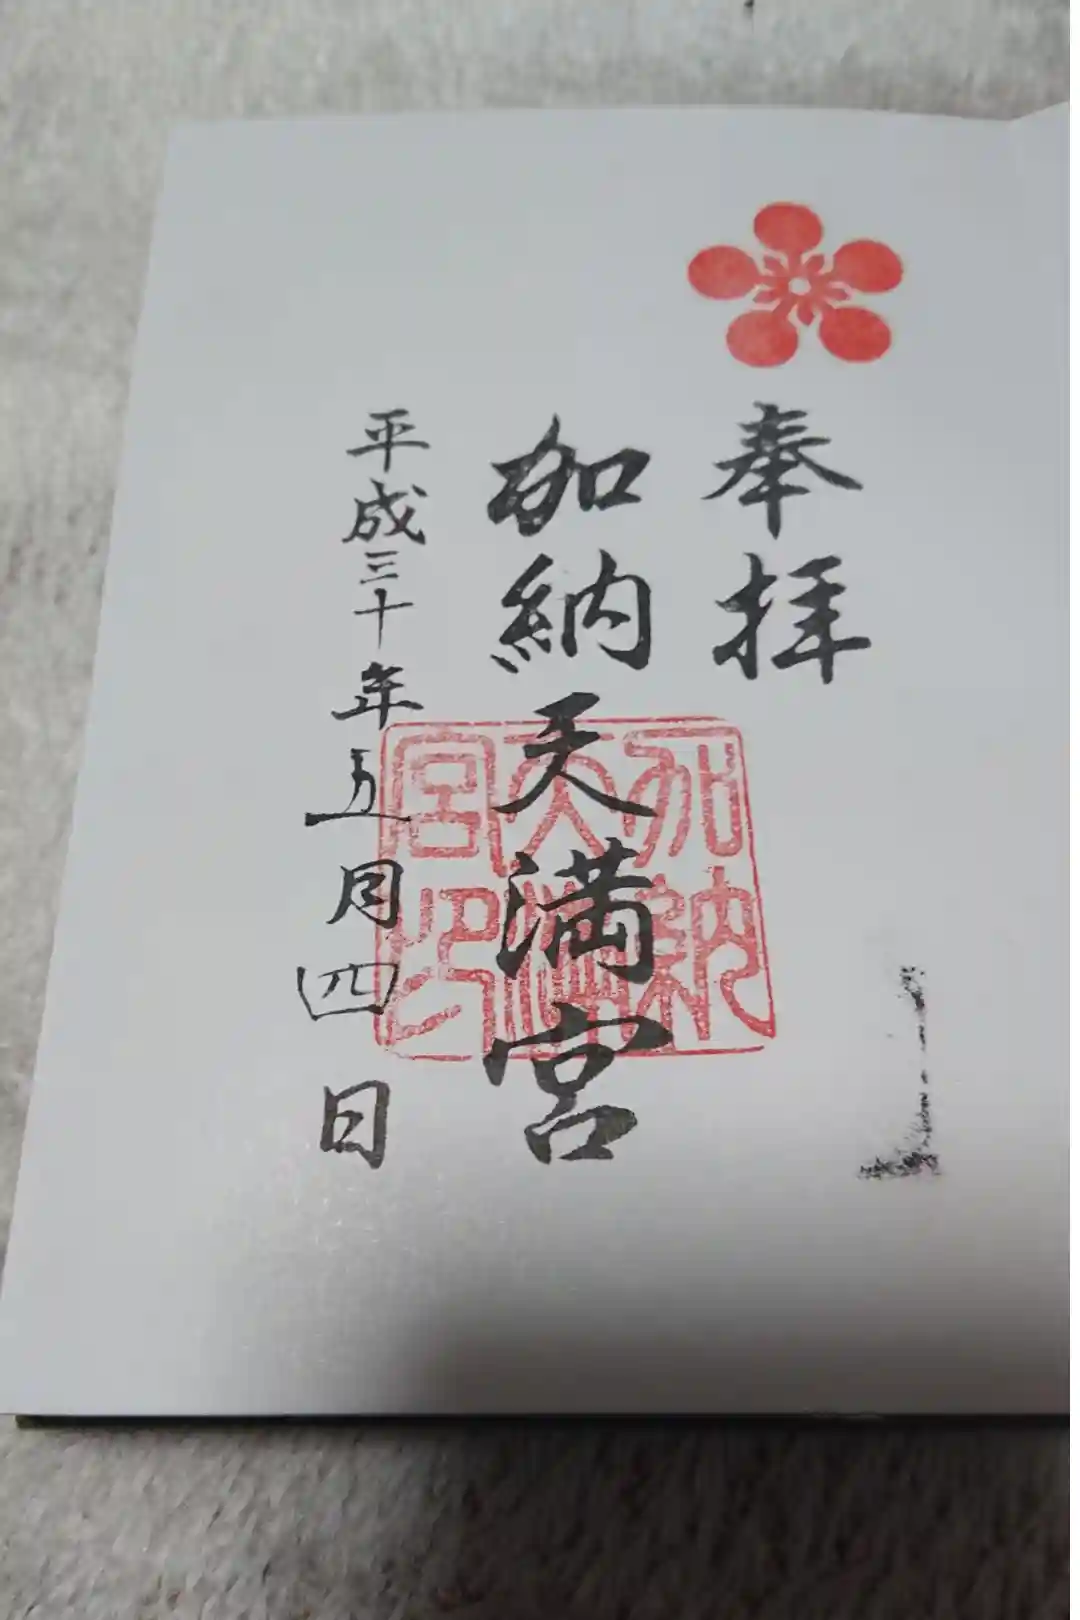 奉拝
加納天満宮
加納天満宮印
平成三十年五月四日